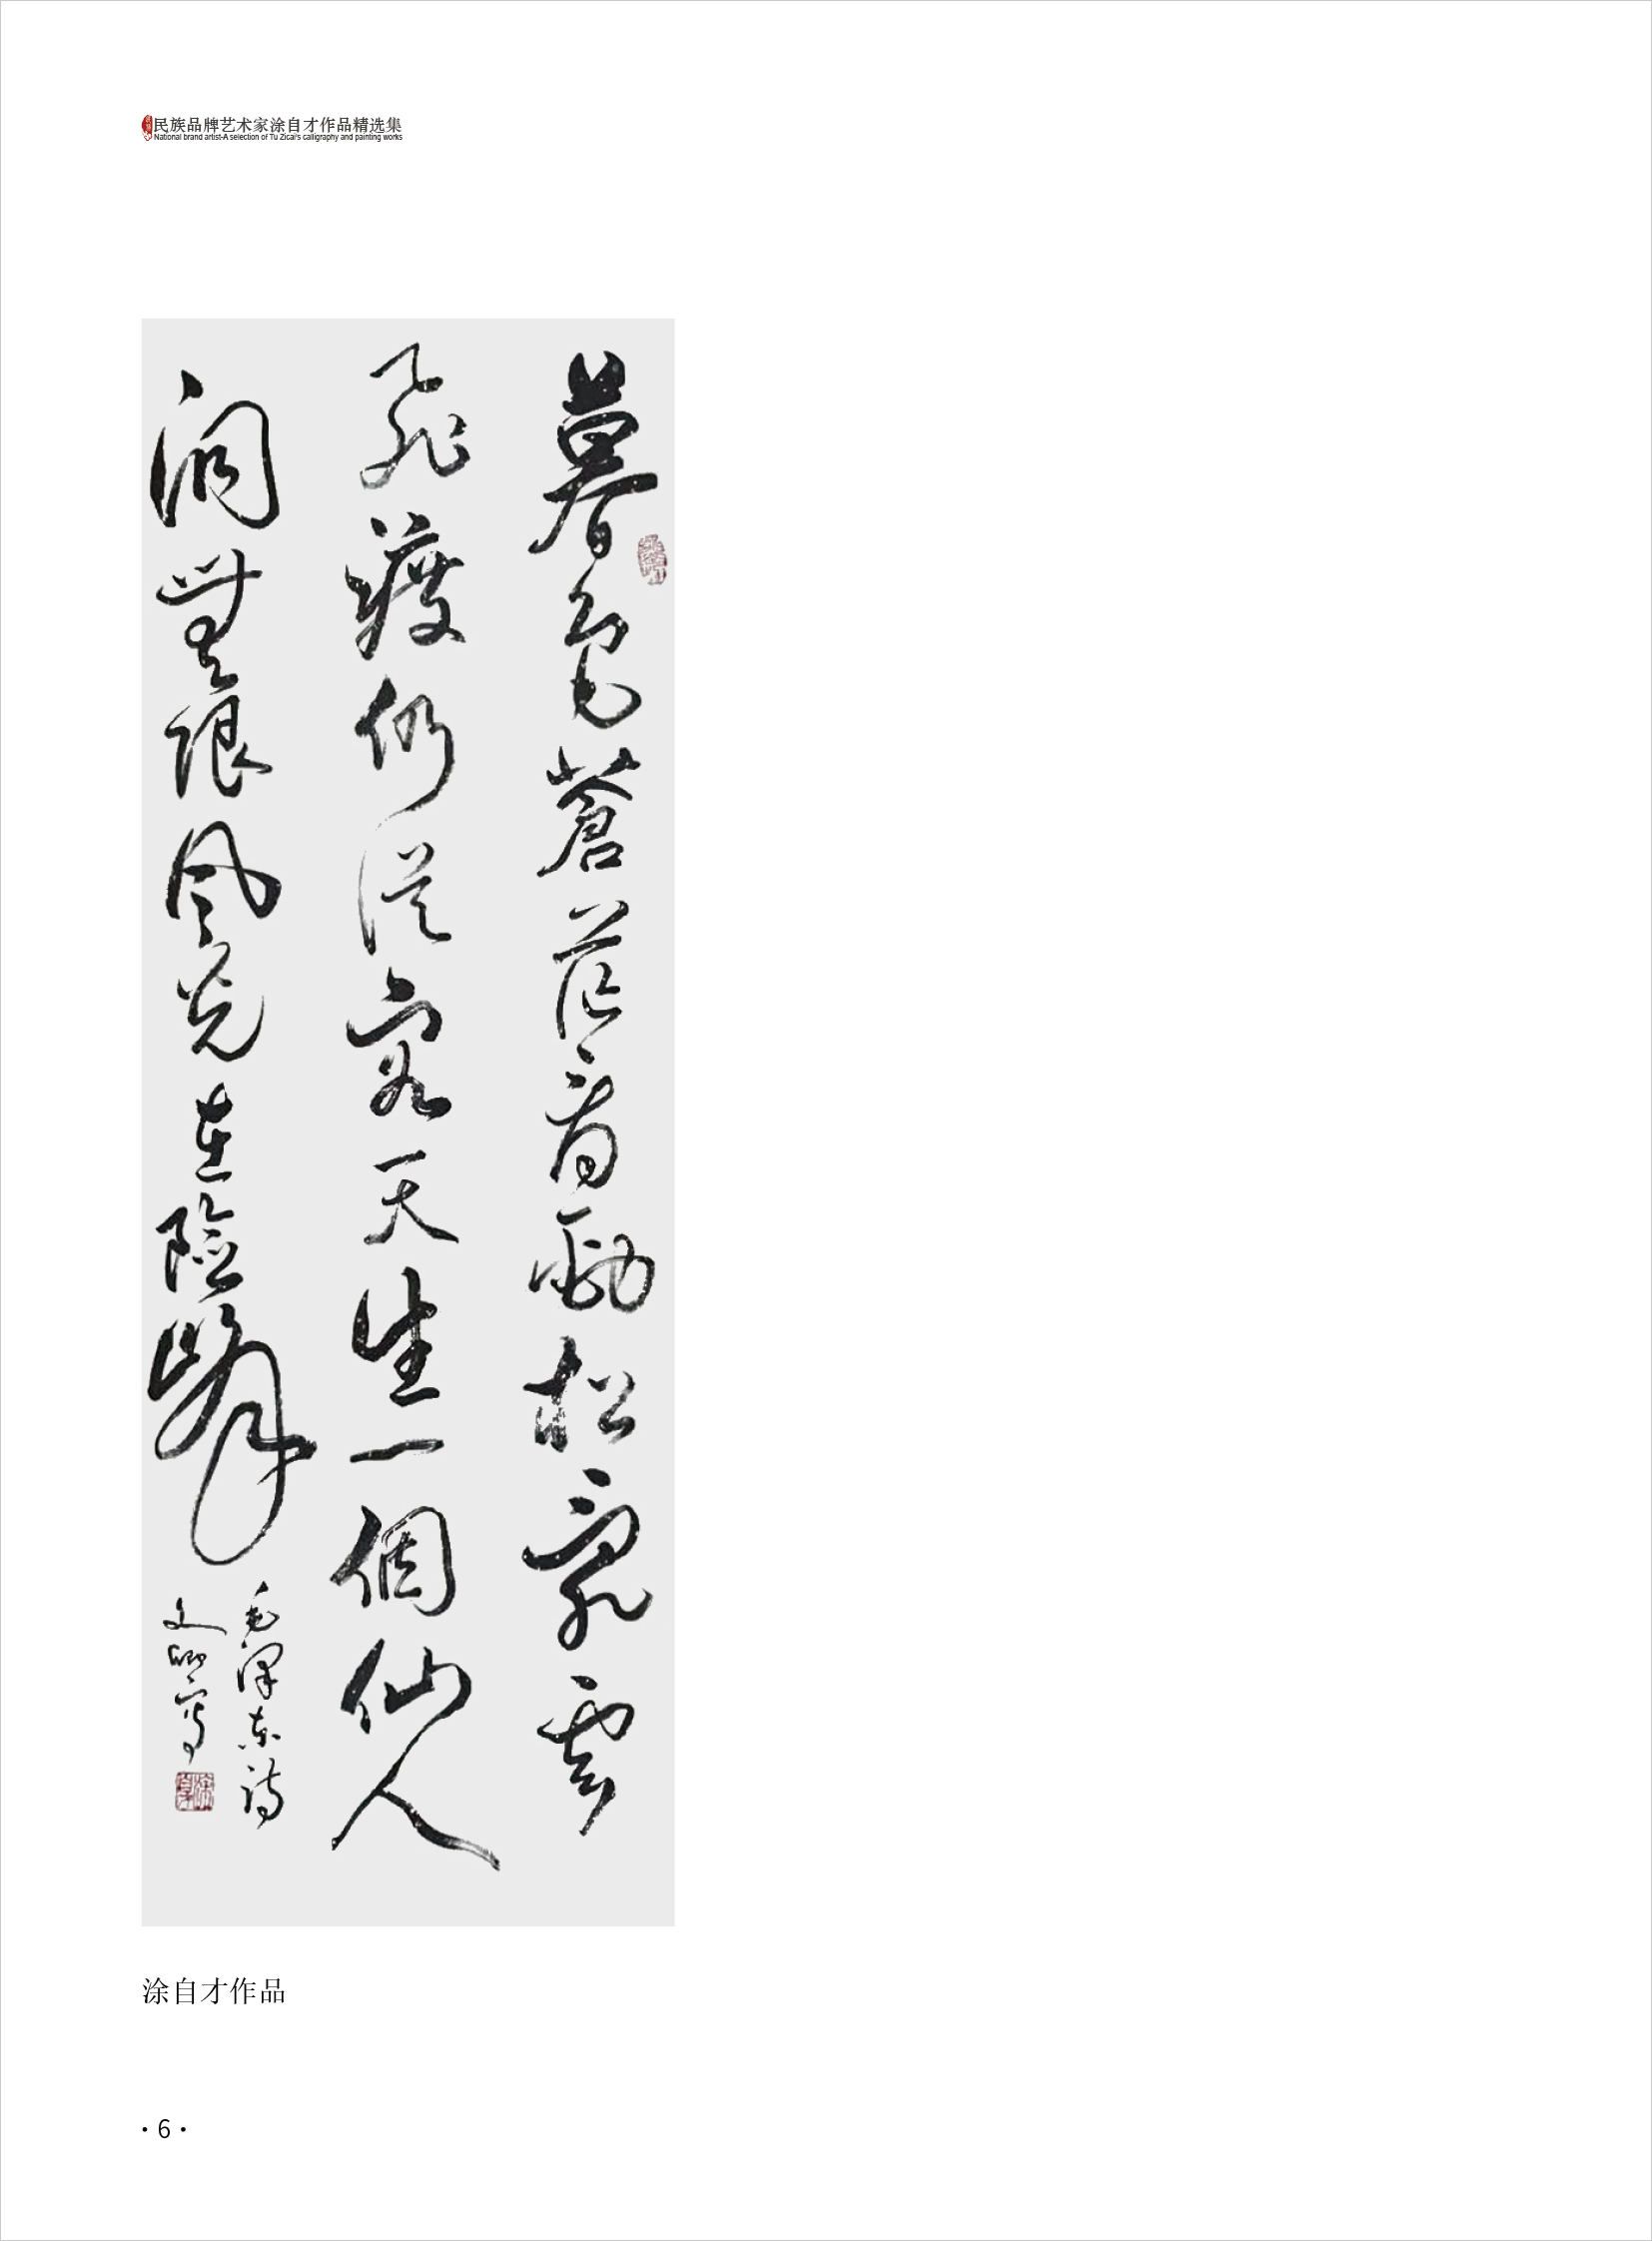 民族品牌艺术家涂自才作品精选集
National brand artist-A selection of Tu Zicai's calligraphy and painting works
暮色蒼茫看勁松亂雲
飛渡仍從容天生一個仙人
洞無限風光在險峰
毛澤东詩
文 寫
涂自才作品
·6·